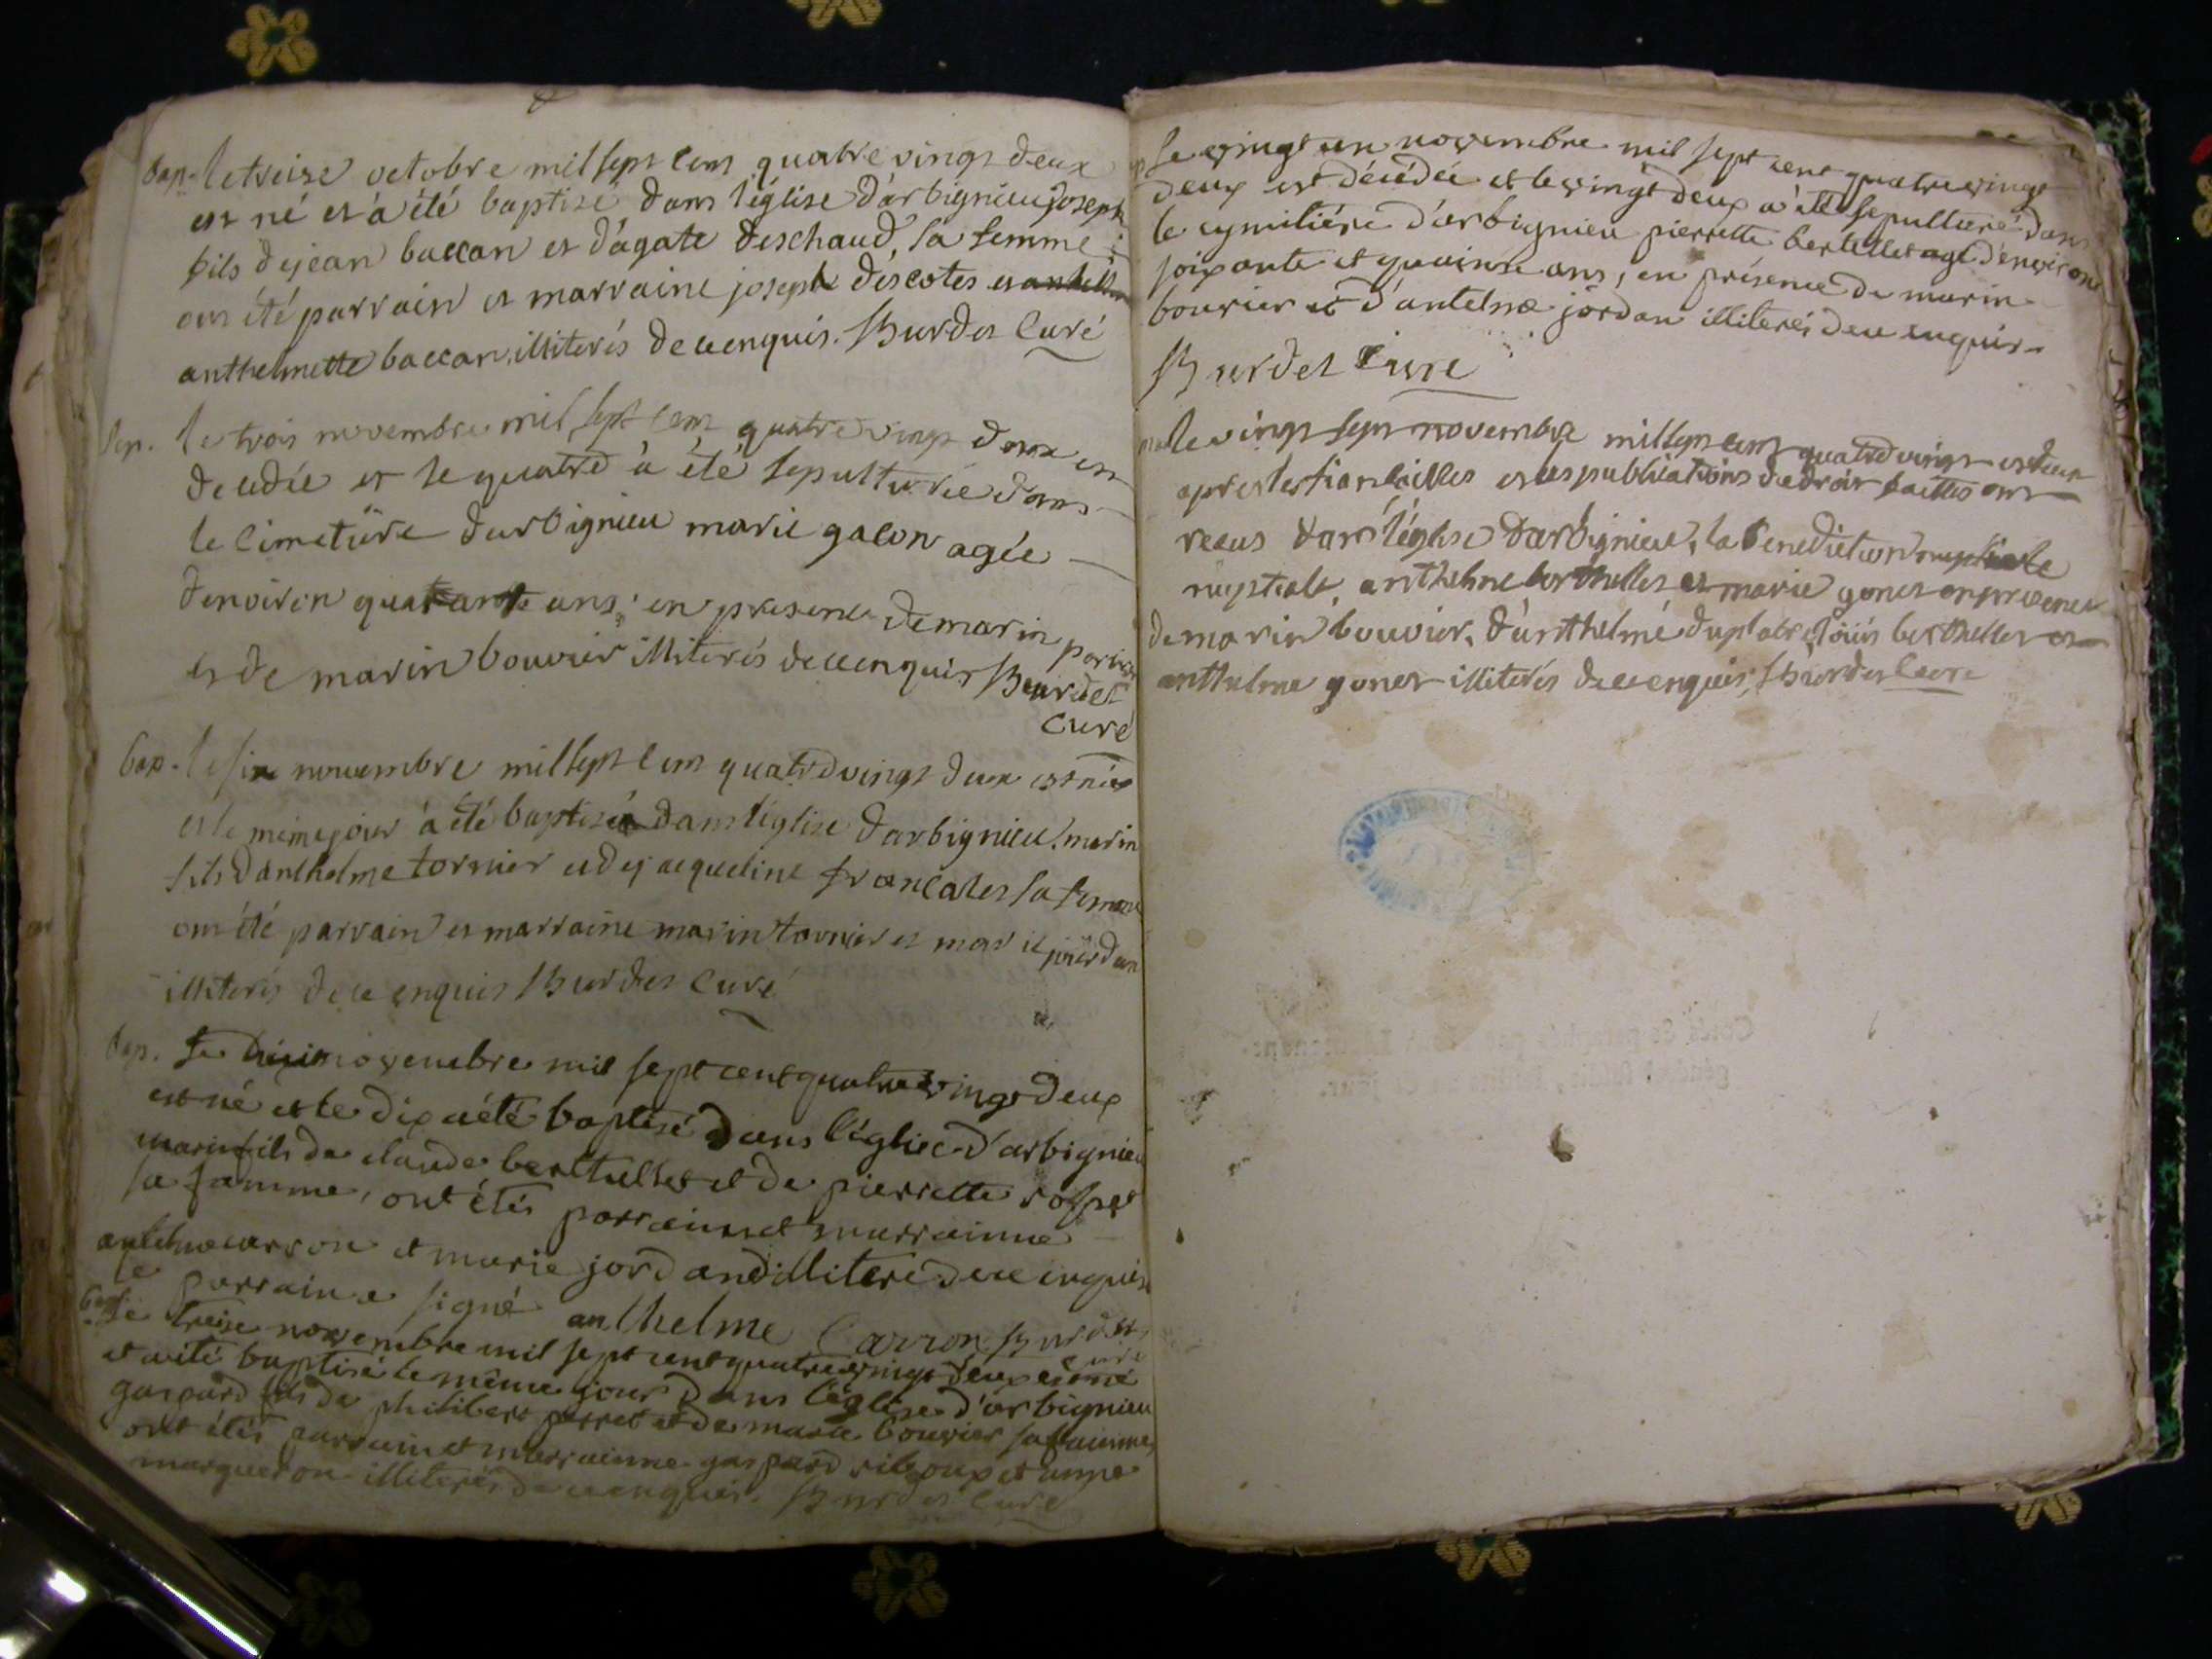 bap. le treise octobre mil sept cent quatre vingt deux
est né et a été baptisé dans l'église d'arbignieu joseph
fils de jean baccan et d'agate deschaud, sa femme
ont été parrain et marraine joseph descotes et
anthelmette baccan illiterés de ce enquis. Burdet Curé
sep. le trois novembre mil sept cent quatre vingt deux est
decedée et le quatre à été sepulturée dans
le cimetiere d'arbignieu marie galon agée
d'environ quarante ans, en presence de marin
et de marin bouvier illiterés de ce enquis Burdet
Curé
bap. le six novembre mil sept cent quatre vingt deux est né
et le même jour à été baptisé dans l'église d'arbignieu marin
fils d'anthelme tornier et de jacqueline francalet sa femme
ont été parrain et marraine marin tornier et marie jourdan
illiterés de ce enquis Burdet Curé
bap. Le huit novembre mil sept cent quatre vingt deux
est né et le dix a été baptisé dans l'église d'arbignieu
marin fils de claude berthellet et de pierrette rosset
sa famme, ont étés parrain et marrainne
antelme carron et marie jordand illiteré de ce enquise
le parrain a signé anthelme Carron Burdet
curé
bap. Le treise novembre mil sept cent quatre vingt deux est né
et a été baptisé le même jour dans l'église d'arbignieu
gaspard fils de philibert perret et de marie bouvier sa famme,
ont étés parrain et marrainne gaspard riboux et anne
margueron illiterés de ce enquis. Burdet Curé
Le vingt un novembre mil sept cent quatre vingt
deux est décédée et le vingt deux a été sepulturé dans
le cymitiére d'arbignieu pierrette bertellet agé d'environt
soixante et quinse ans, en présence de marin
bourier et d'antelme jordan illiterés de ce enquis
Burdet Curé
le vingt sept novembre mil sept cent quatre vingt et deux
apres les fiancailles et les publications de droit faittes ont
recus dans l'église d'arbignieu, la benediction nuptiale
nuptiale, anthelme berthellet et marie gonet en presence
de marin bouvier, d'anthelme duplatre, louis berthellet et
anthelme gonet illiterés de ce enquis, Burdet Curé